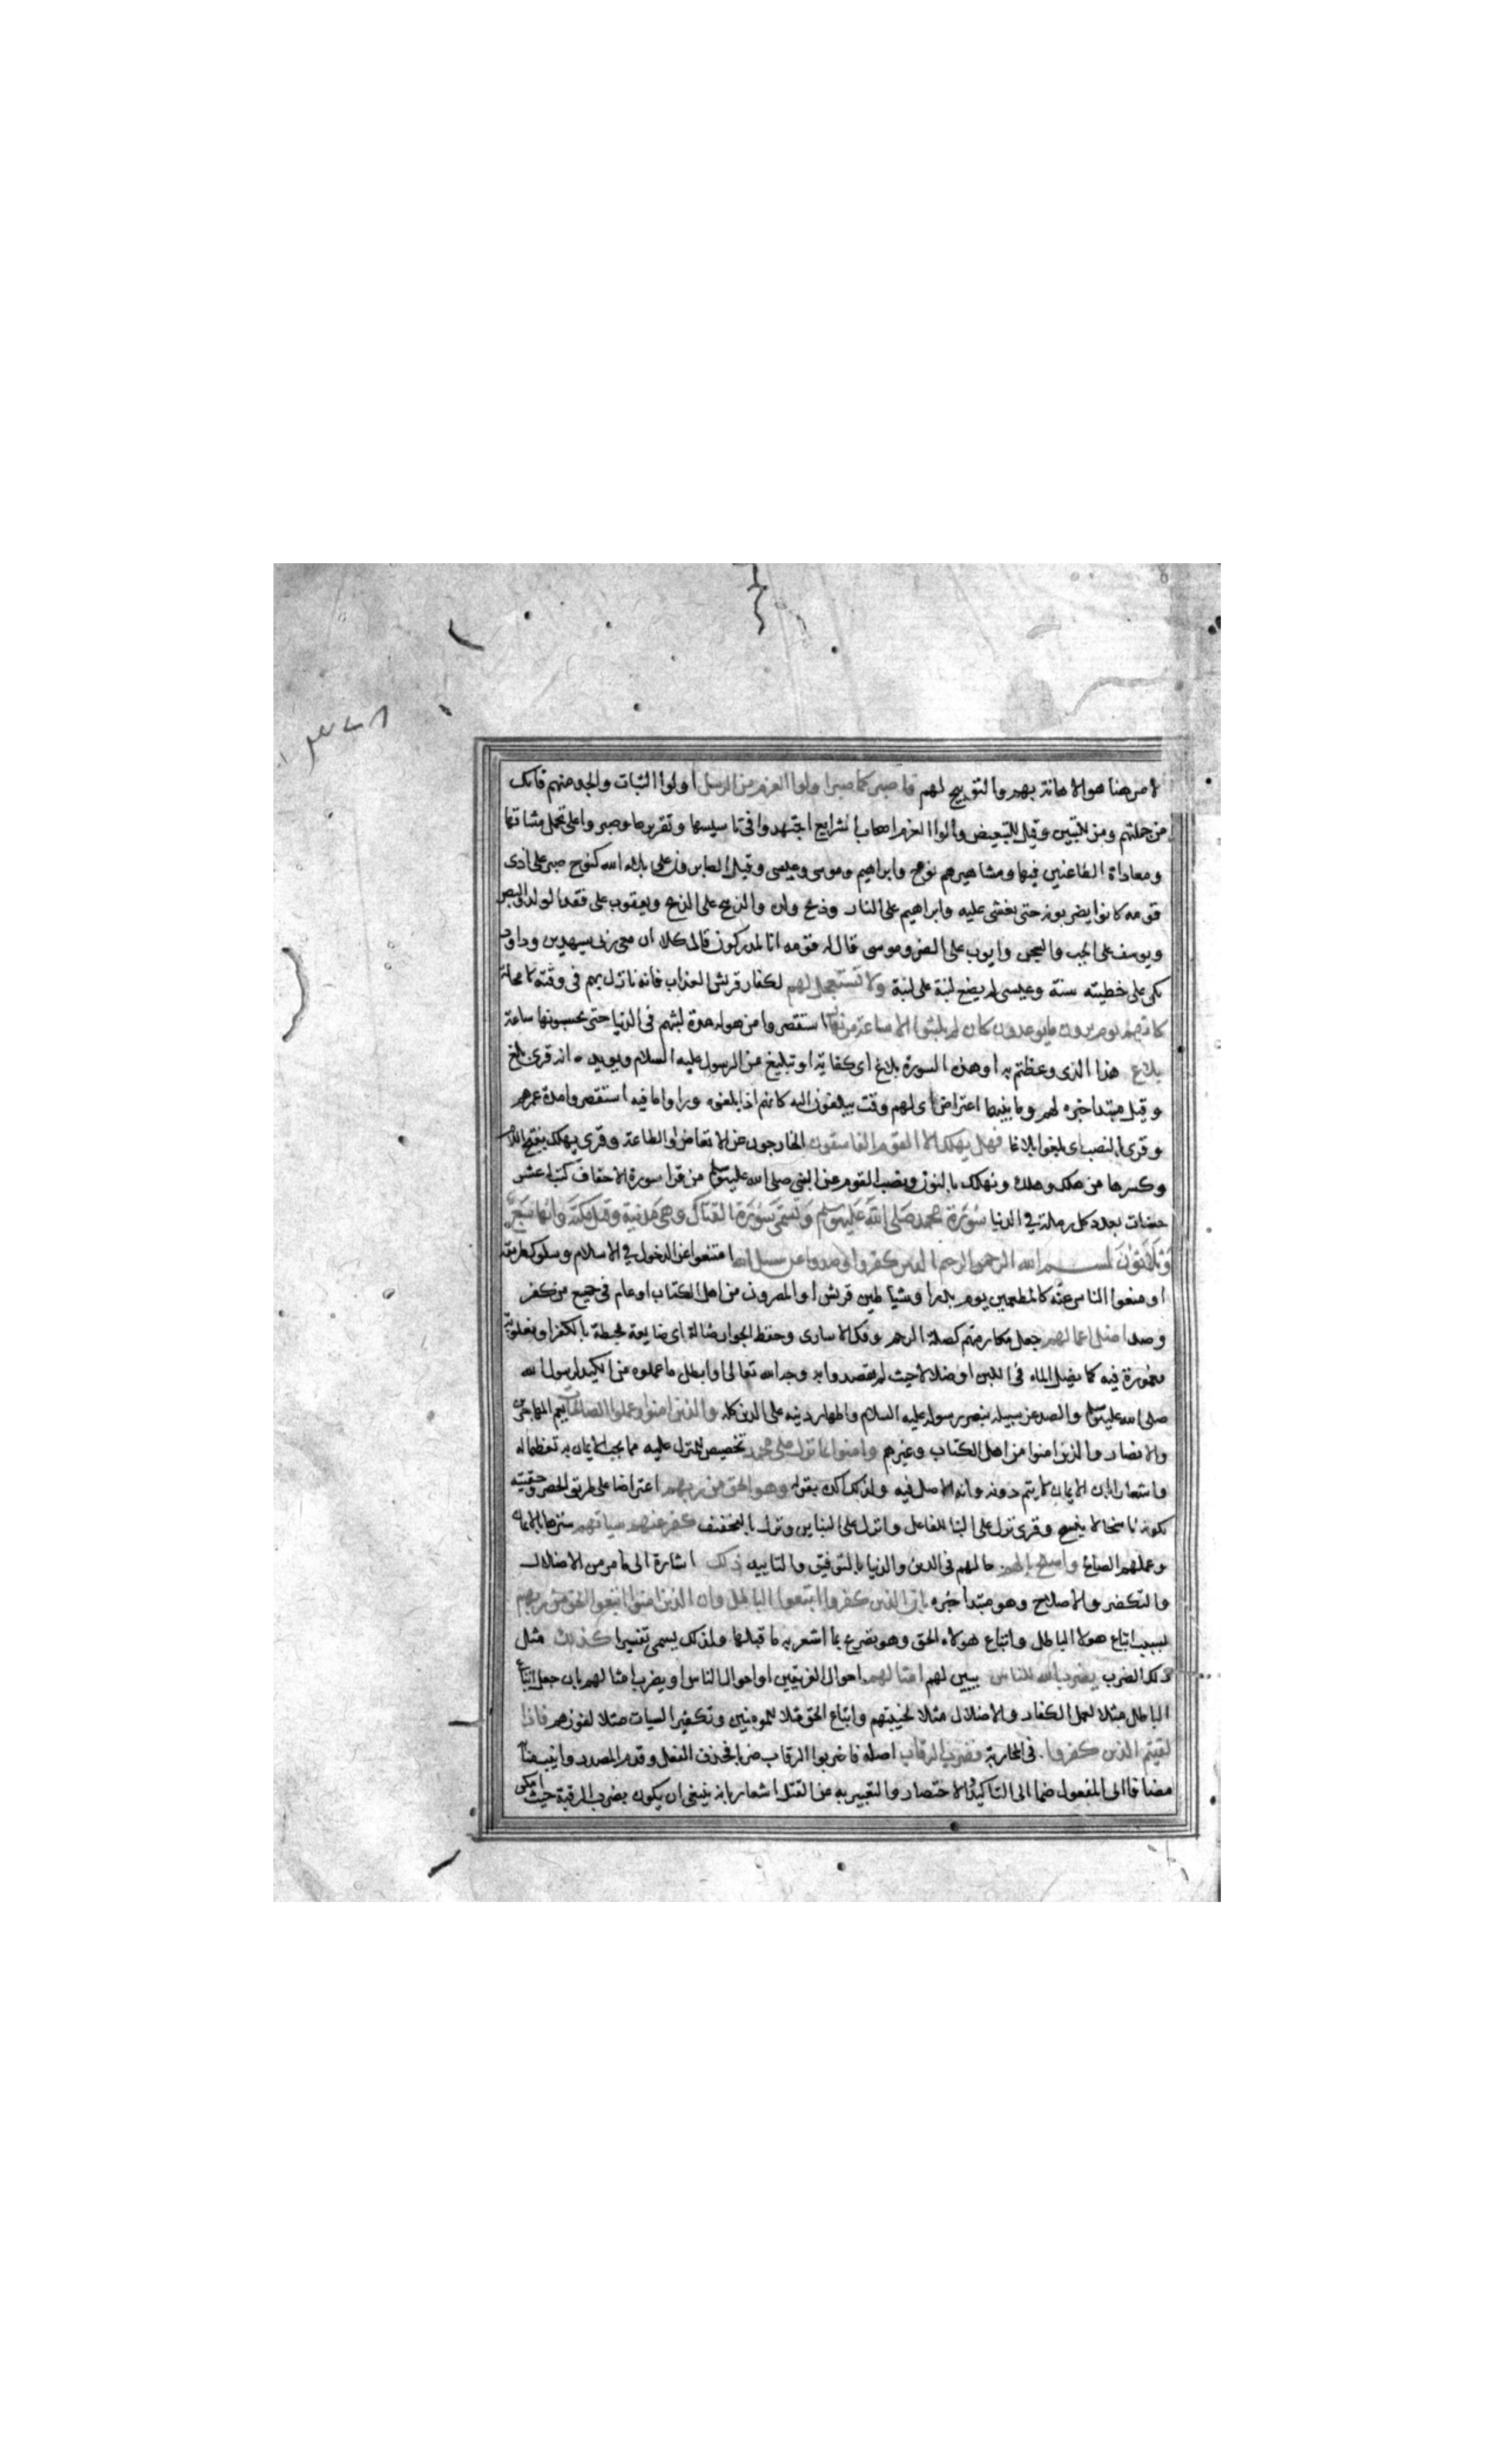 الامر هنا هو الاهانة بهم والتوبيخ لهم فاصبر كما صبر اولوا العزم من الرسل اولوا الثبات والجد منهم فانك
من جملتهم ومن للتبيين وقيل للتبعيض واولوا العزم اصحاب الشرايع اجتهدوا فى تاسيسها وتقريرها وصبروا على تحمل مشاقها
ومعاداة الطاعنين فيها ومشاهيرهم نوح وابراهيم وموسى وعيسى وقيل الصابرون على بلاء الله كنوح صبر على اذى
قومه كانوا يضربونه حتى يغشى عليه وابراهيم على النار وذبح ولده والذبيح على الذبح ويعقوب على فقد الولد والبصر
ويوسف على الجب والسجن وايوب على الضر وموسى قال له قومه انا لمدركون قال كلا ان معى ربى سيهدين وداود
بكى على خطيته سنة وعيسى لم يضع لبنة على لبنة ولا تستعجل لهم لكفار قريش العذاب فانه نازل بهم فى وقته لا محالة
كانهم يوم يرون ما يوعدون كان لم يلبثوا الا ساعة من نهار استقصروا من هوله مدة لبثهم فى الدنيا حتى يحسبونها ساعة
بلاغ هذا الذى وعظتم به او هذه السورة بلاغ اى كفاية او تبليغ من الرسول عليه السلام ويويده انه قرئ بلغ
وقيل مبتدا خبره لهم وما بينهما اعتراض اى لهم وقت يبلغون اليه كانهم اذا بلغوه وراوا ما فيه استقصروا مدة عمرهم
وقرئ بالنصب اى بلغوا بلاغا فهل يهلك الا القوم الفاسقون الخارجون عن الاتعاظ والطاعة وقرى يهلك بفتح اللام
وكسرها من هلك وهلك ونهلك بالنون ونصب القوم عن النبى صلى الله عليه وسلم من قرا سورة الاحقاف كتب له عشر
حسنات بعدد كل رملة فى الدنيا سورة محمد صلى الله عليه وسلم وتسمى سورة القتال وهى مدنية وقيل مكية وايها سبع
وثلاثون بسم الله الرحمن الرحيم الذين كفروا وصدوا عن سبيل الله امتنعوا عن الدخول فى الاسلام وسلوك طريقه
او منعوا الناس عنه كالمطعمين يوم بدر او شياطين قريش او المصرون من اهل الكتاب او عام فى جميع من كفر
وصد اضل اعمالهم جعل مكارمهم كصلة الرحم وفك الاسارى وحفظ الجوار ضالة اى ضايعة محبطة بالكفر او مغلوبة
مغمورة فيه كما يضل الماء فى اللبن او ضلالا حيث لم يقصدوا به وجه الله تعالى او ابطل ما عملوه من الكيد لرسول الله
صلى الله عليه وسلم والصد عن سبيله بنصر رسوله عليه السلام واظهار دينه على الدين كله والذين امنوا وعملوا الصالحات يعم المهاجرين
والانصار والذين امنوا من اهل الكتاب وغيرهم وامنوا بما نزل على محمد تخصيص للمنزل عليه مما يجب الايمان به تعظيما له
واشعارا بان الايمان لا يتم دونه وانه الاصل فيه ولذلك اكده بقوله وهو الحق من ربهم اعتراضا على طريق الحصر وحقيته
بكونه ناسخا لا ينسخ وقرئ نزل على البنا للفاعل وانزل على البناين ونزل بالتخفيف كفر عنهم سياتهم سترها بالايمان
وعملهم الصالح واصلح بالهم حالهم فى الدين والدنيا بالتوفيق والتاييد ذلك اشارة الى ما مر من الاضلال
والتكفير والاصلاح وهو مبتدا خبره بان الذين كفروا اتبعوا الباطل وان الذين امنوا اتبعوا الحق من ربهم
بسبب اتباع هولا الباطل واتباع هولاء الحق وهو تصريح بما اشعر به ما قبلها ولذلك يسمى تفسيرا كذلك مثل
ذلك الضرب يضرب الله للناس يبين لهم امثالهم احوال الفريقين او احوال الناس او يضرب امثالهم بان جعل اتباع
الباطل مثلا لعمل الكفار والاضلال مثلا لخيبتهم واتباع الحق مثلا للمومنين وتكفير السيات مثلا لفوزهم فاذا
لقيتم الذين كفروا فى المحاربة فضرب الرقاب اصله فاضربوا الرقاب ضربا فحذف الفعل وقدم المصدر وانيب منابه
مضافا الى المفعول ضما الى التاكيد والاختصار والتعبير به عن القتل اشعار بانه ينبغى ان يكون بضرب الرقبة حيث امكن